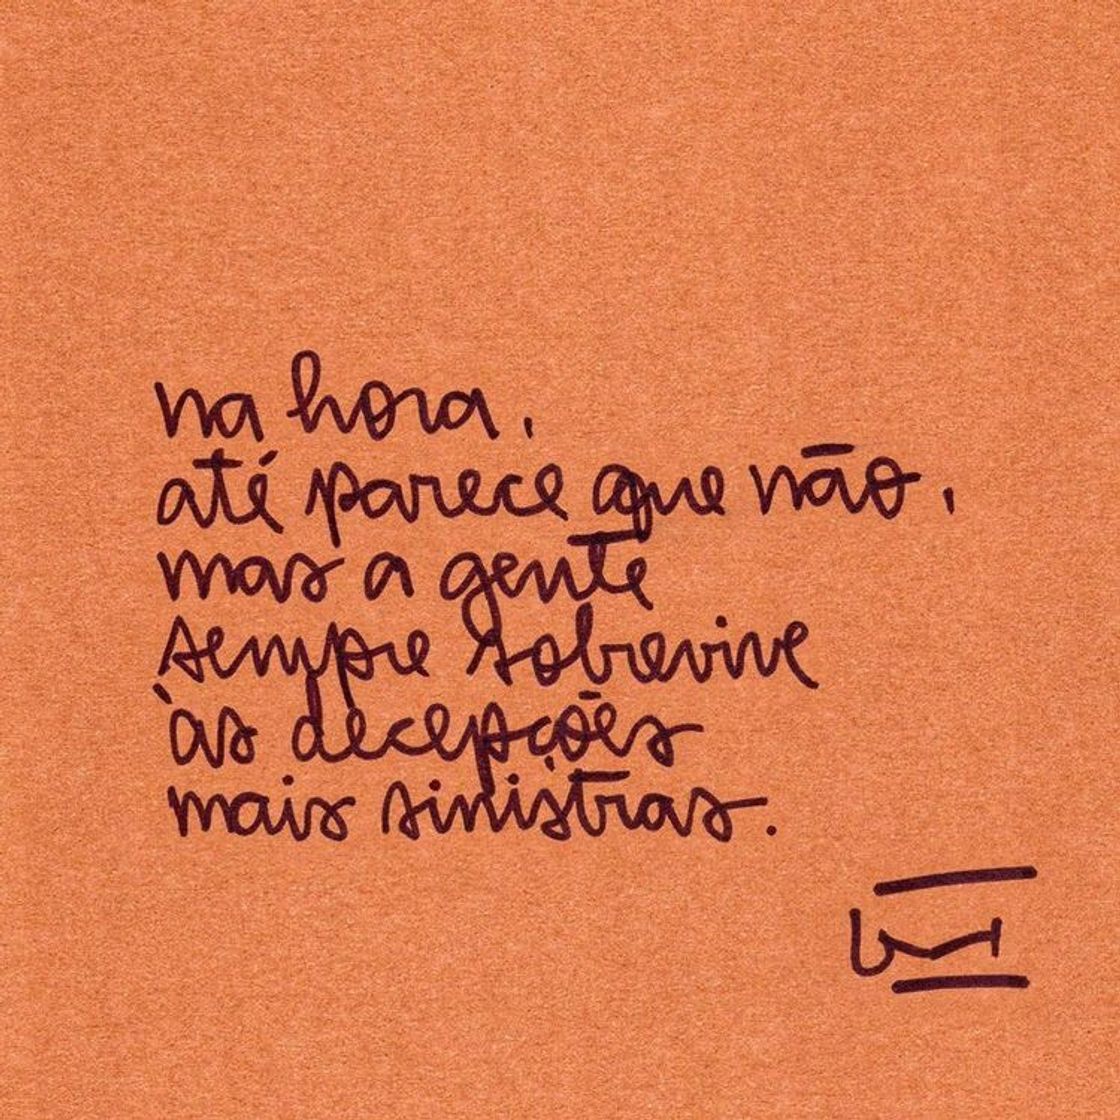 na hora,
até parece que não,
mas a gente
sempre sobrevive
às decepções
mais sinistras.